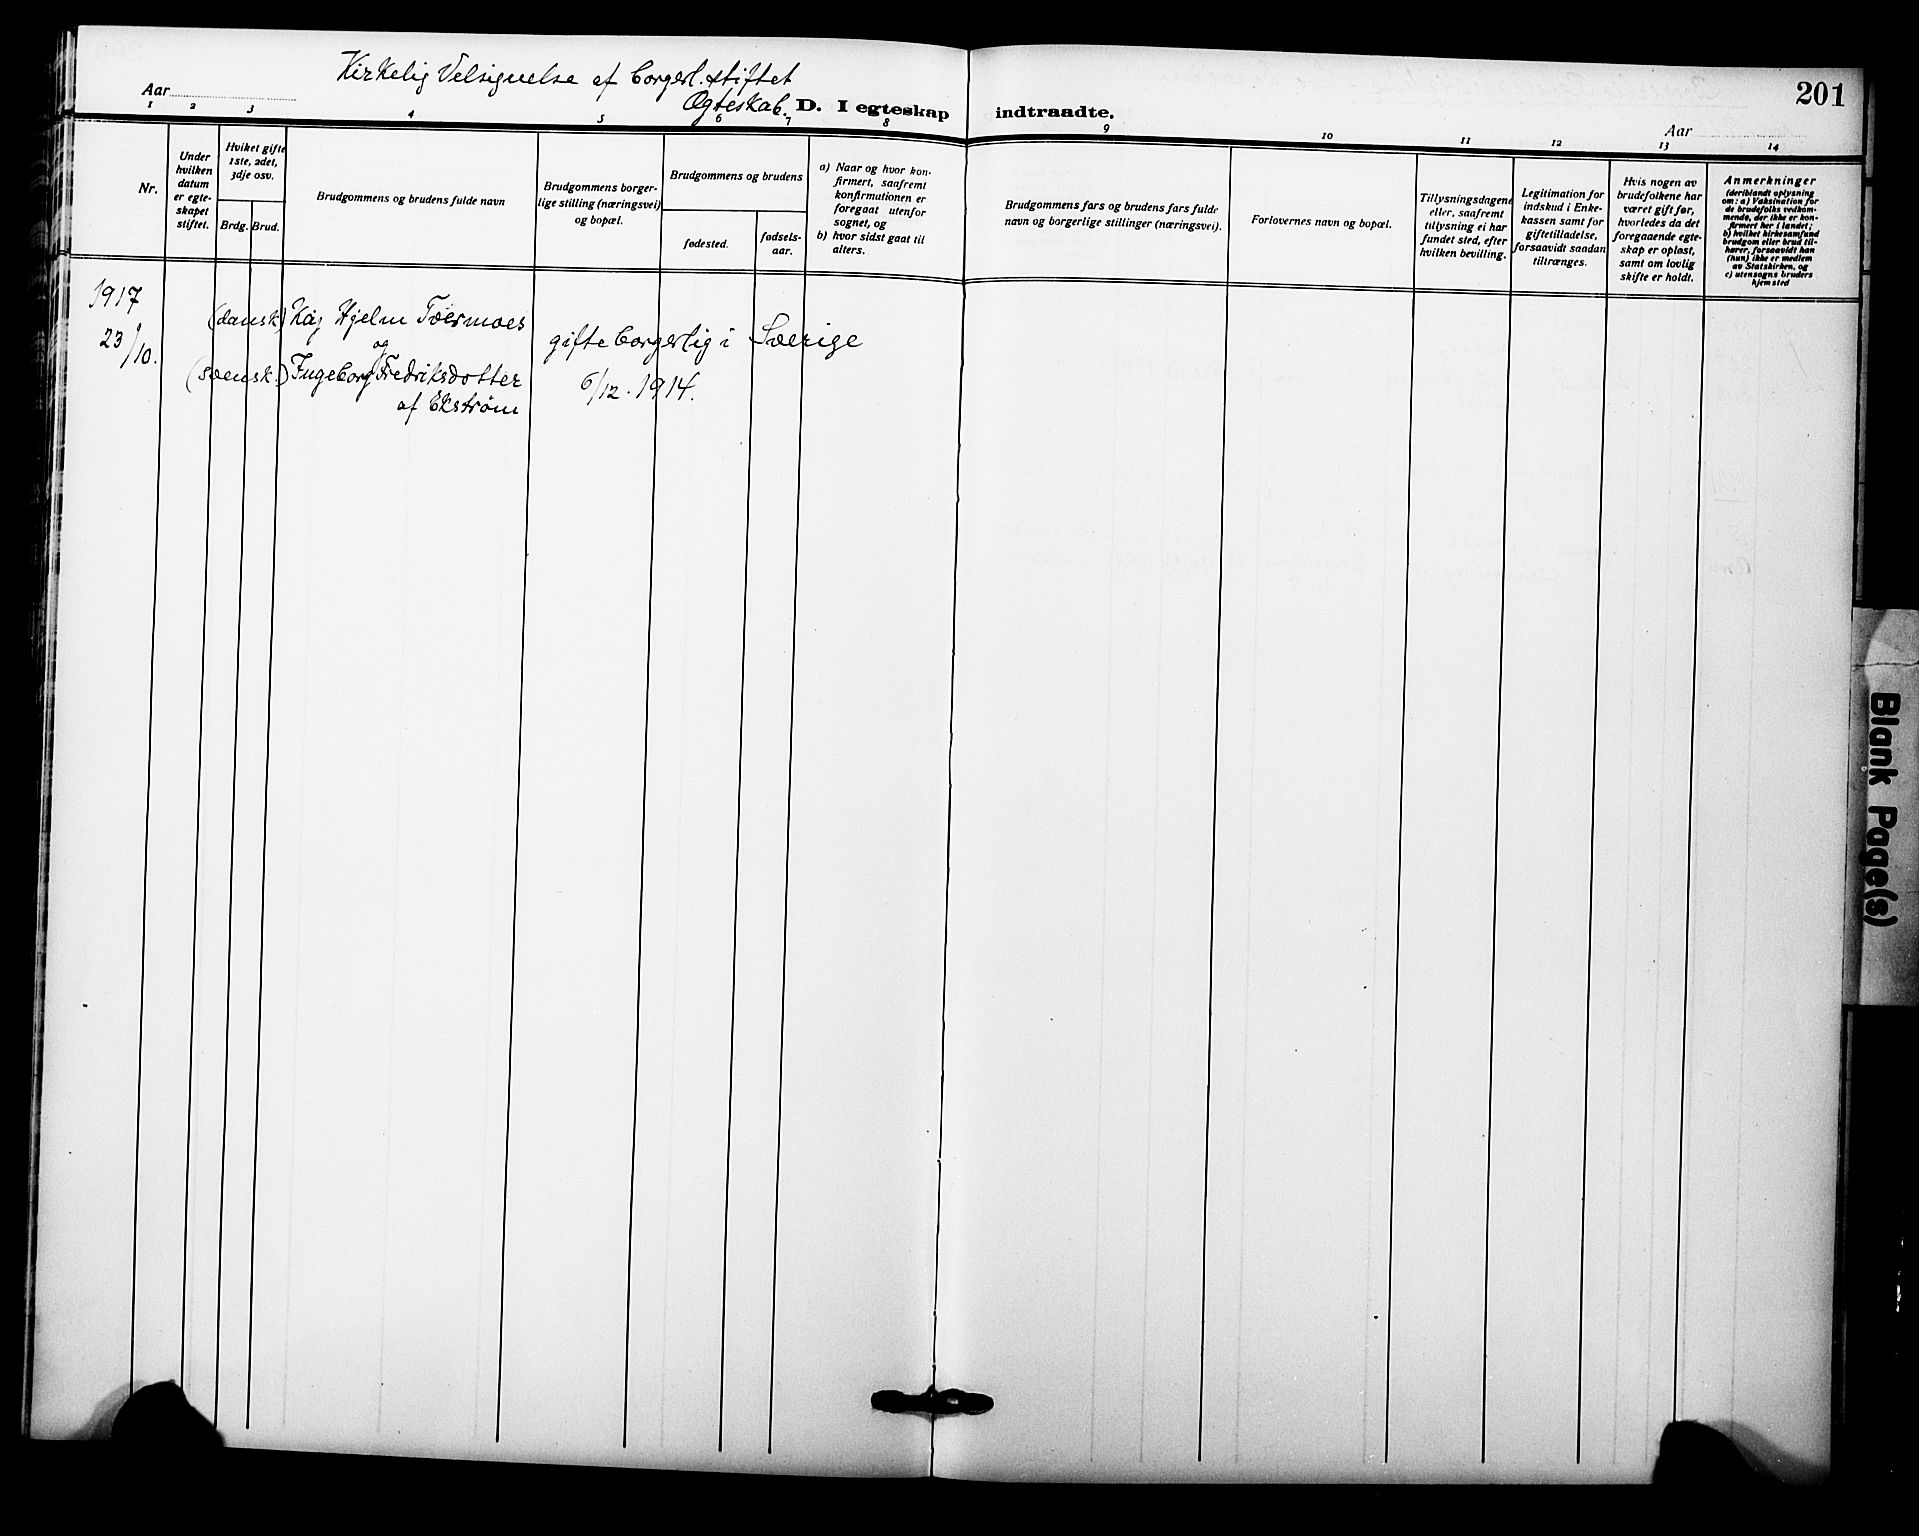 Kirkelig Velsignelse af borgerl. stiftet
Ægteskab.
Aar
D. I egteskap indtraadte.
201
Aar
1 2 3 4 5 6 7 8 9 10 11 12 13 14
Nr.
Under
hvilken
datum
er egte-
skapet
stiftet.
Hviket gifte
1ste, 2det,
3dje osv.
Brdg. Brud.
Brudgommens og brudens fulde navn
Brudgommens borger-
lige stilling (næringsvei)
og bopæl.
Brudgommens og brudens
fødested.
fødsels-
aar.
a) Naar og hvor kon-
firmert, saafremt
konfirmationen er
foregaat utenfor
sognet, og
b) hvor sidst gaat til
alters.
Brudgommens fars og brudens fars fulde
navn og borgerlige stillinger (næringsvei).
Forlovernes navn og bopæl.
Tillysningsdagene
eller, saafremt
tillysning ei har
fundet sted, efter
hvilken bevilling.
Legitimation for
indskud i Enke-
kassen samt for
giftetilladelse,
forsaavidt saadan
tiltrænges.
Hvis nogen av
brudefolkene har
været gift før,
hvorledes da det
foregaaende egte-
skap er opløst,
samt om lovlig
skifte er holdt.
Anmerkninger
(deriblandt oplysning
om: a) Vaksination for
de brudefolks vedkom-
mende, der ikke er kon-
firmert her i landet;
b) hvilket kirkesamfund
brudgom eller brud til-
hører, forsaavidt han
(hun) ikke er medlem
av Statskirken, og
c) utensogns bruders
hjemsted
1917
23/10.
(dansk) Kaj Hjelm Tøermoes
og
(svensk.) Ingeborg Fredriksdotter
af Ekstrøm
gifte borgerlig i Sverige
6/12. 1914.
Blank Page(s)